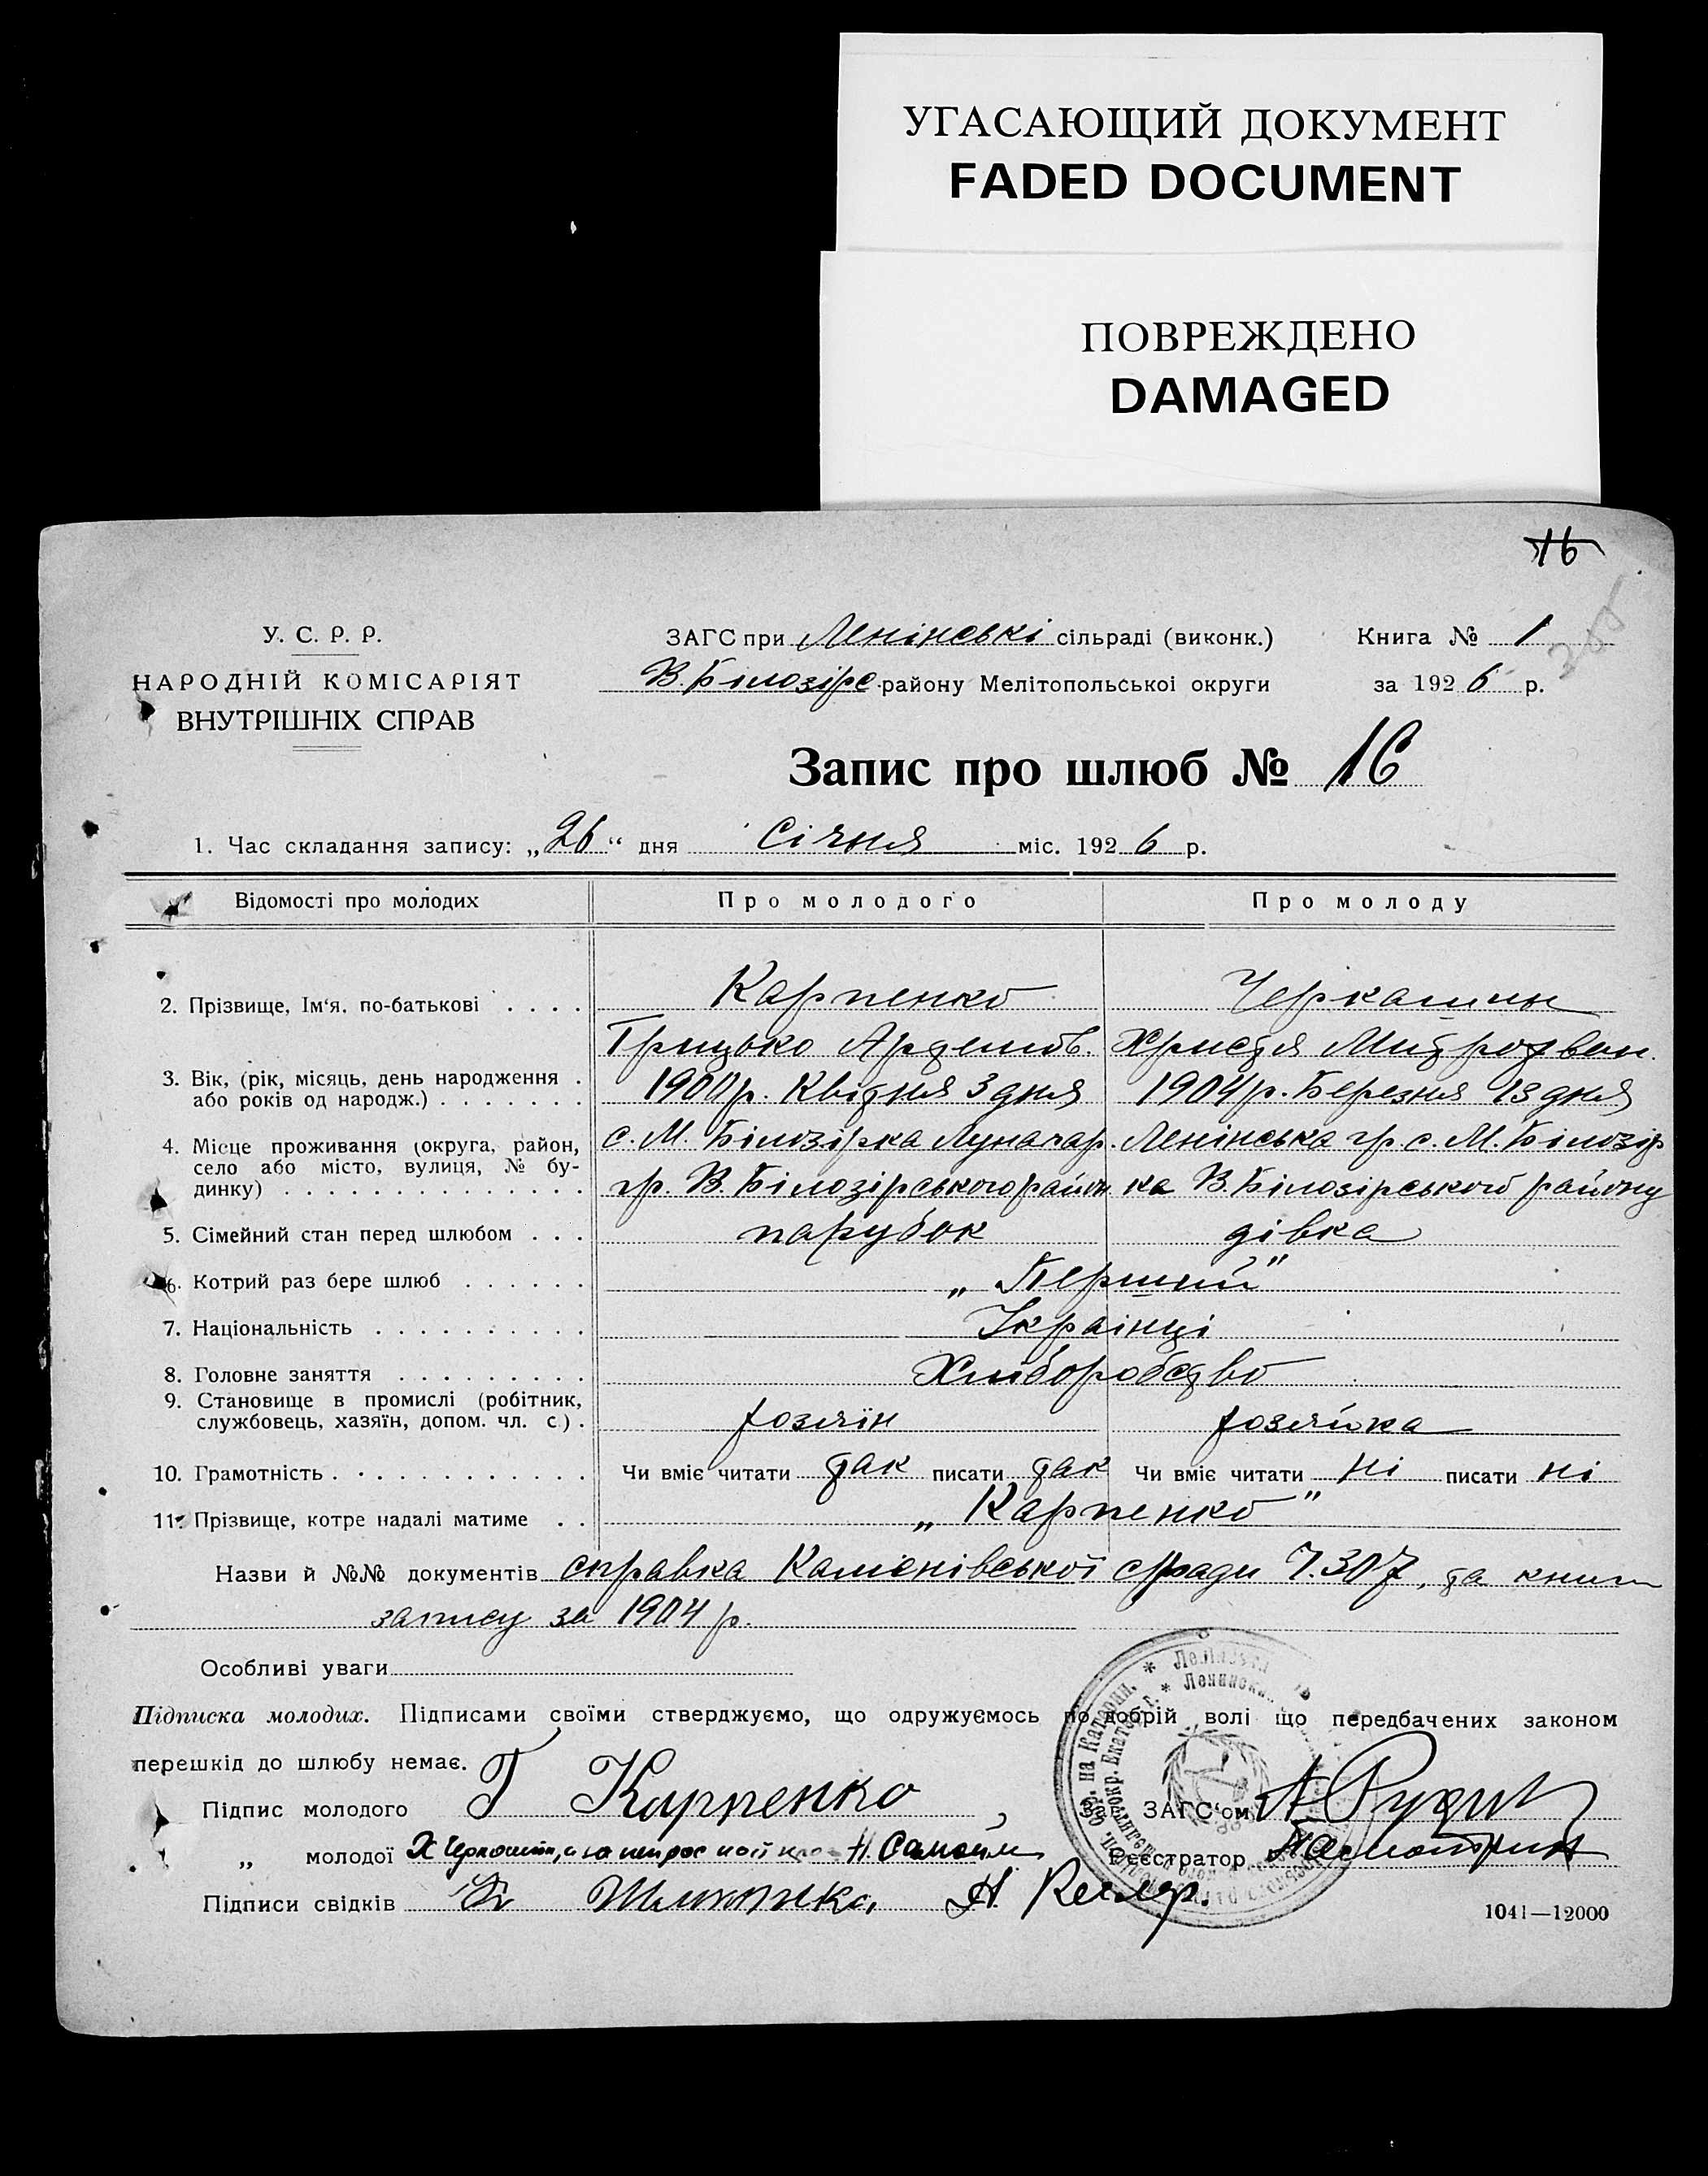 УГАСАЮЩИЙ ДОКУМЕНТ
FADED DOCUMENT
ПОВРЕЖДЕНО
DAMAGED
16
У. С. Р. Р.
НАРОДНІЙ КОМІСАРІЯТ
ВНУТРІШНІХ СПРАВ
ЗАГС при Ленінські сільраді (виконк.)
В. Білозірс району Мелітопольськоі округи
Книга № 1
за 1926 р.
Запис про шлюб № 16
1. Час складання запису: „26“ дня Січня міс. 1926 р.
Відомості про молодих Про молодого Про молоду
2. Прізвище, Ім‘я, по-батькові . . . . Карпенко Черкашин
Грицько Артемов. Христя Митрофван.
3. Вік, (рік, місяць, день народження . або років од народж.) . . . . . . . 1900 р. Квітня 3 дня 1904 р. Березня 13 дня
4. Місце проживання (округа, район, село або місто, вулиця, № будинку) . . . . . . . . . . . . . .
с. М. Білозірка Луначар. Ленінська гр. с. М. Білозір
гр. В. Білозірського район ка В. Білозірського району
5. Сімейний стан перед шлюбом . . . парубок дівка
6. Котрий раз бере шлюб . . . . . . „Перший"
7. Національність . . . . . . . . . . Украінці
8. Головне заняття . . . . . . . . . Хліборобство
9. Становище в промислі (робітник, службовець, хазяїн, допом. чл. с.) . хозяїн хозяйка
10. Грамотність . . . . . . . . . . . . Чи вміє читати так писати так Чи вміє читати ні писати ні
11. Прізвище, котре надалі матиме . . „Карпенко"
Назви й №№ документів справка Каменівської с/ради Ч. 307, та книги
запису за 1904 р.
Особливі уваги
Підписка молодих. Підписами своїми стверджуємо, що одружуємось по добрій волі що передбачених законом
перешкід до шлюбу немає.
Підпис молодого Г Карпенко
Зав. ЗАГС‘ом
„ молодої Х Черкашин, а за
Реєстратор
Підписи свідків
1041—12000